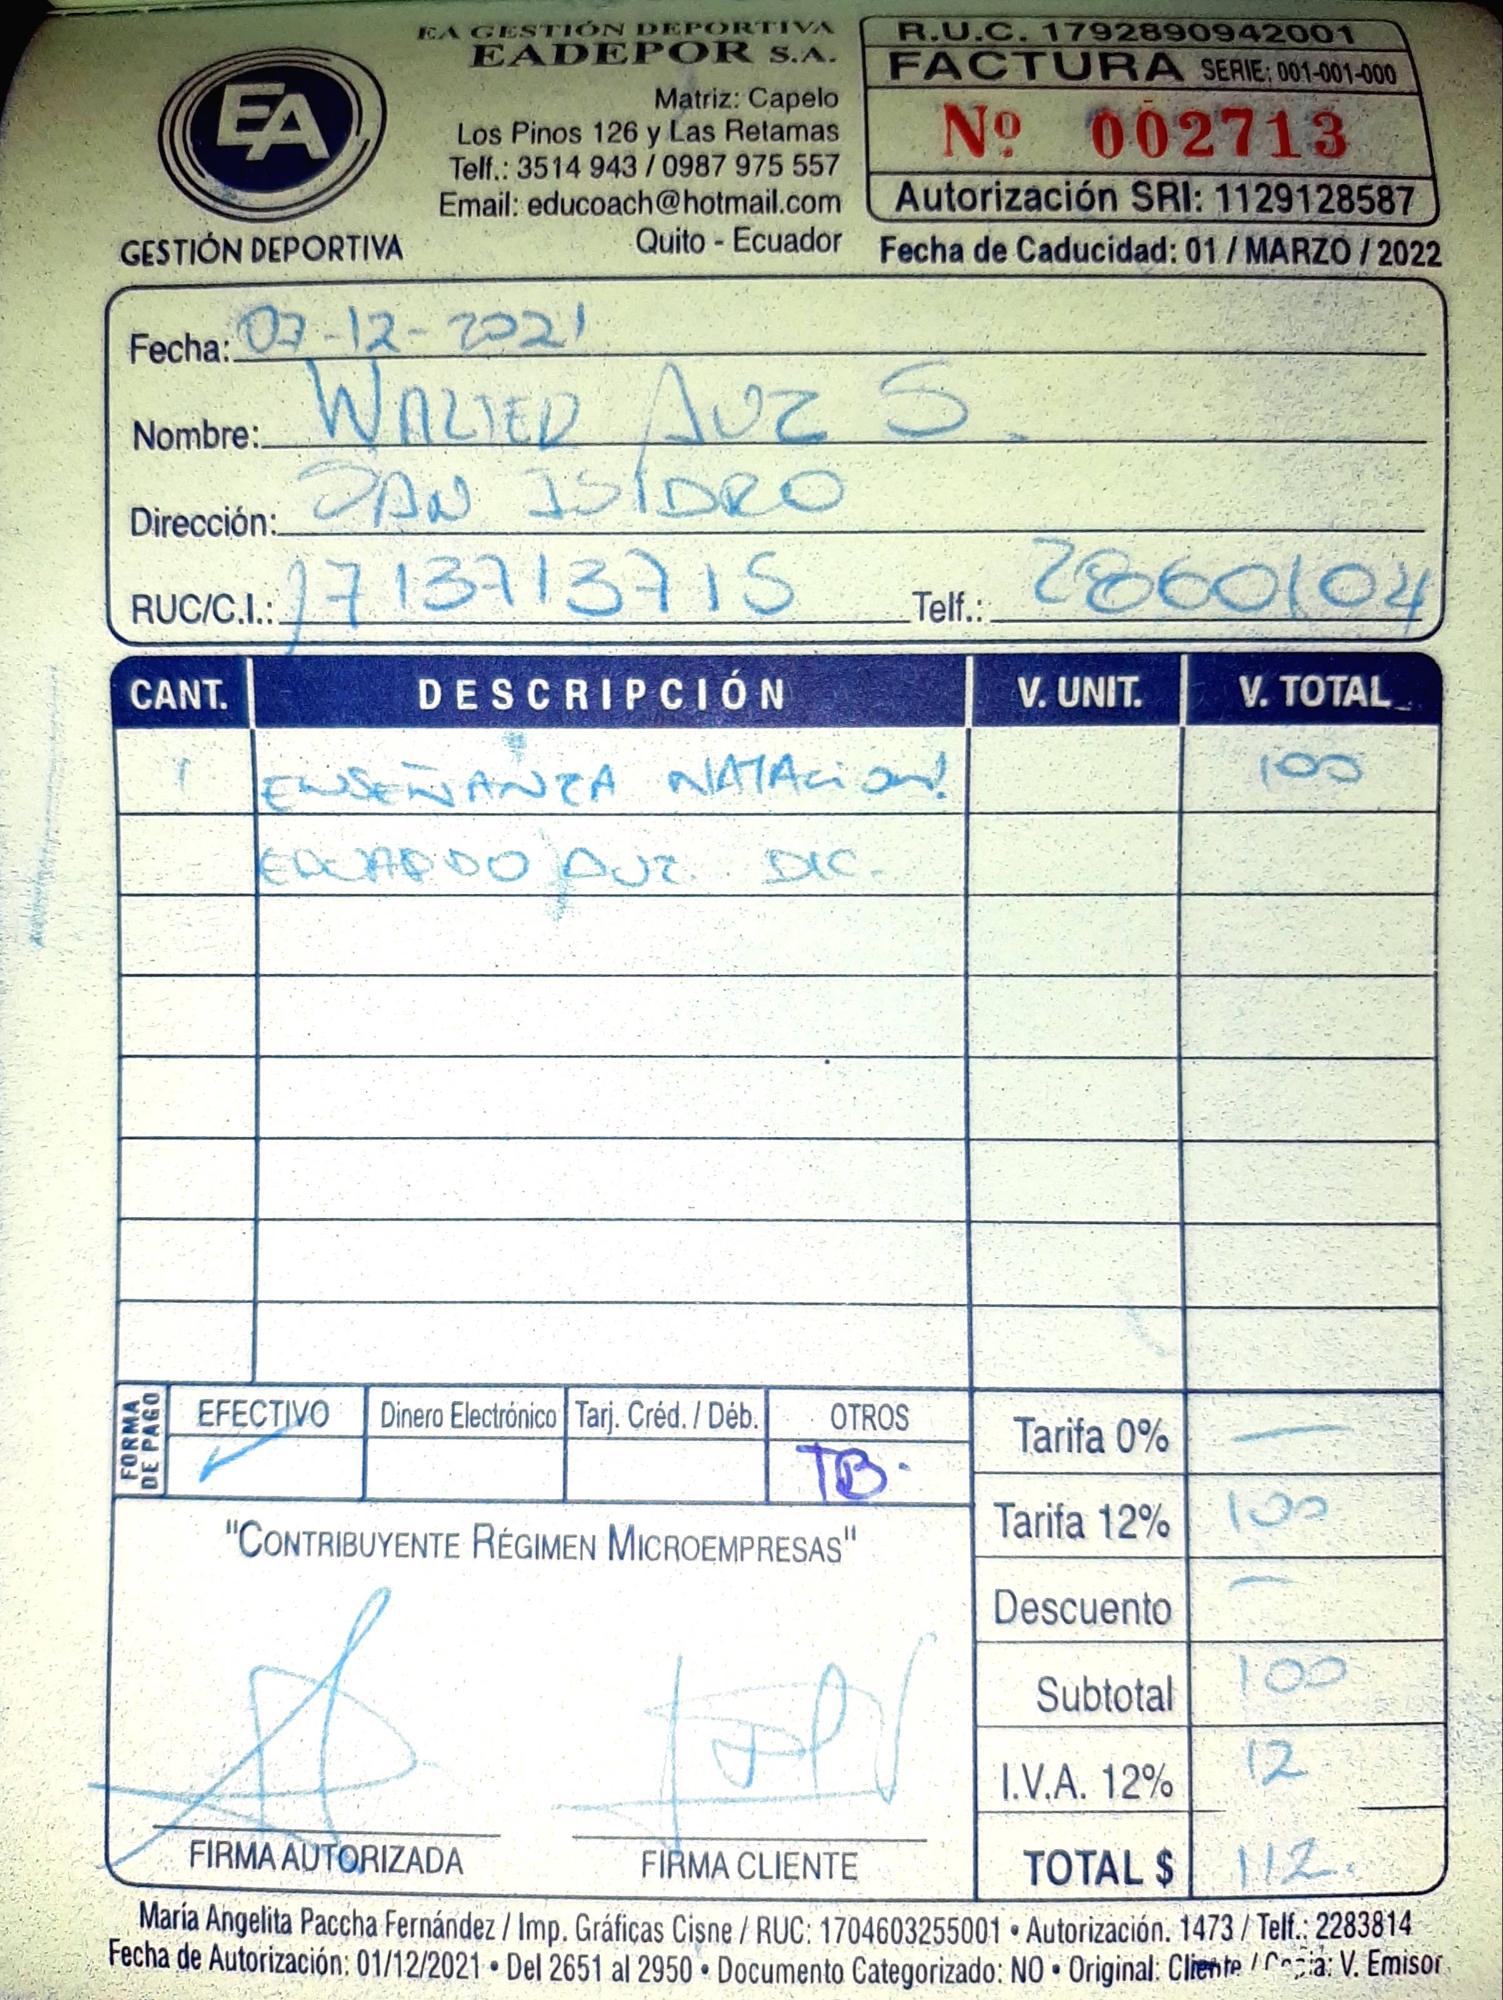 EA GESTIÓN DEPORTIVA
EADEPOR S.A.
Matriz: Capelo
Los Pinos 126 y Las Retamas
Telf.: 3514 943 / 0987 975 557
Email: educoach@hotmail.com
Quito - Ecuador
EA
GESTIÓN DEPORTIVA
R.U.C. 1792890942001
FACTURA SERIE: 001-001-000
Nº 002713
Autorización SRI: 1129128587
Fecha de Caducidad: 01 / MARZO / 2022
Fecha: 07-12-2021
Nombre: WALTER AUZ S.
Dirección: SAN ISIDRO
RUC/C.I.: 1713713715 Telf.: 2860104
CANT. DESCRIPCIÓN V. UNIT. V. TOTAL
1 ENSEÑANZA NATACION! 100
EDUARDO AUZ DIC.
FORMA DE PAGO
EFECTIVO Dinero Electrónico Tarj. Créd. / Déb. OTROS
✓ TB.
Tarifa 0% —
Tarifa 12% 100
Descuento —
Subtotal 100
I.V.A. 12% 12
TOTAL $ 112.
"CONTRIBUYENTE RÉGIMEN MICROEMPRESAS"
FIRMA AUTORIZADA FIRMA CLIENTE
María Angelita Paccha Fernández / Imp. Gráficas Cisne / RUC: 1704603255001 • Autorización. 1473 / Telf.: 2283814
Fecha de Autorización: 01/12/2021 • Del 2651 al 2950 • Documento Categorizado: NO • Original: Cliente / Copia: V. Emisor